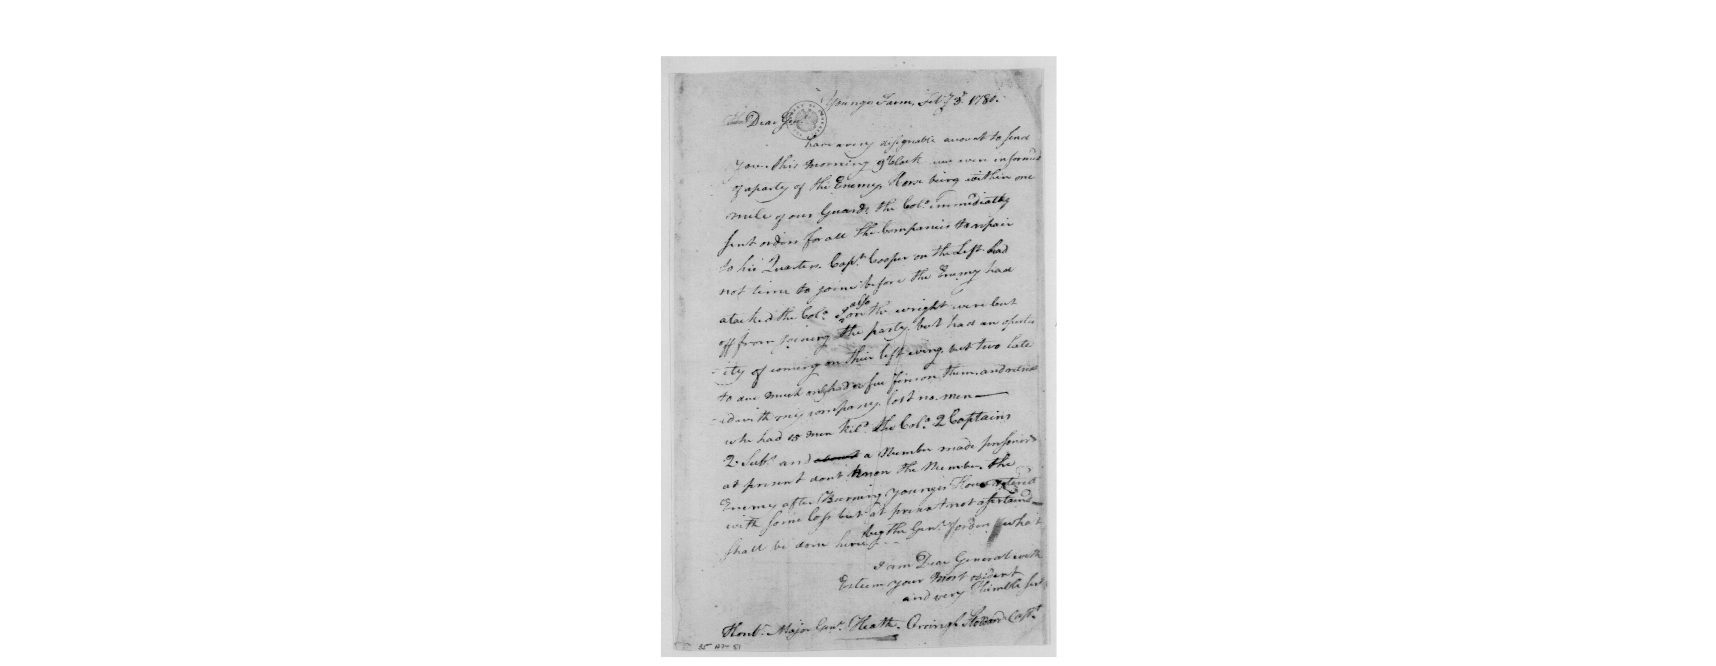 Youngs Farm, Feby 3d 1780.
Dear Genl
have a very disagreable account to send
you. this morning 9 oClock we were informed
of a party of the Enemys Horse being within one
mile of our Guards, the Colo. immediatly
sent orders for all the Companies to repair
to his Quarters. Capt. Cooper on the Left had
not time to joine before the Enemy had
atackted the Colo. I also on the wright were cut
off from joining the party, but had an oportun
ity of coming on their left wing, but two late
to due much only had a few Fires on them, and retreat
ed with my company, lost no men
who had 15 men kild. the Colo. 2 Captains
2 Subs. and about a Number made prisoners
at present dont know the Number, the
Enemy after Burning youngs House retired
with some loss but at present not assertaind
beg the Genl. Orders what
shall be done here
I am Dear General with
Esteem your most obident
and very Humble Servt
Honbl. Major Genl. Heath. Orringh Stoddard Capt.
35 57